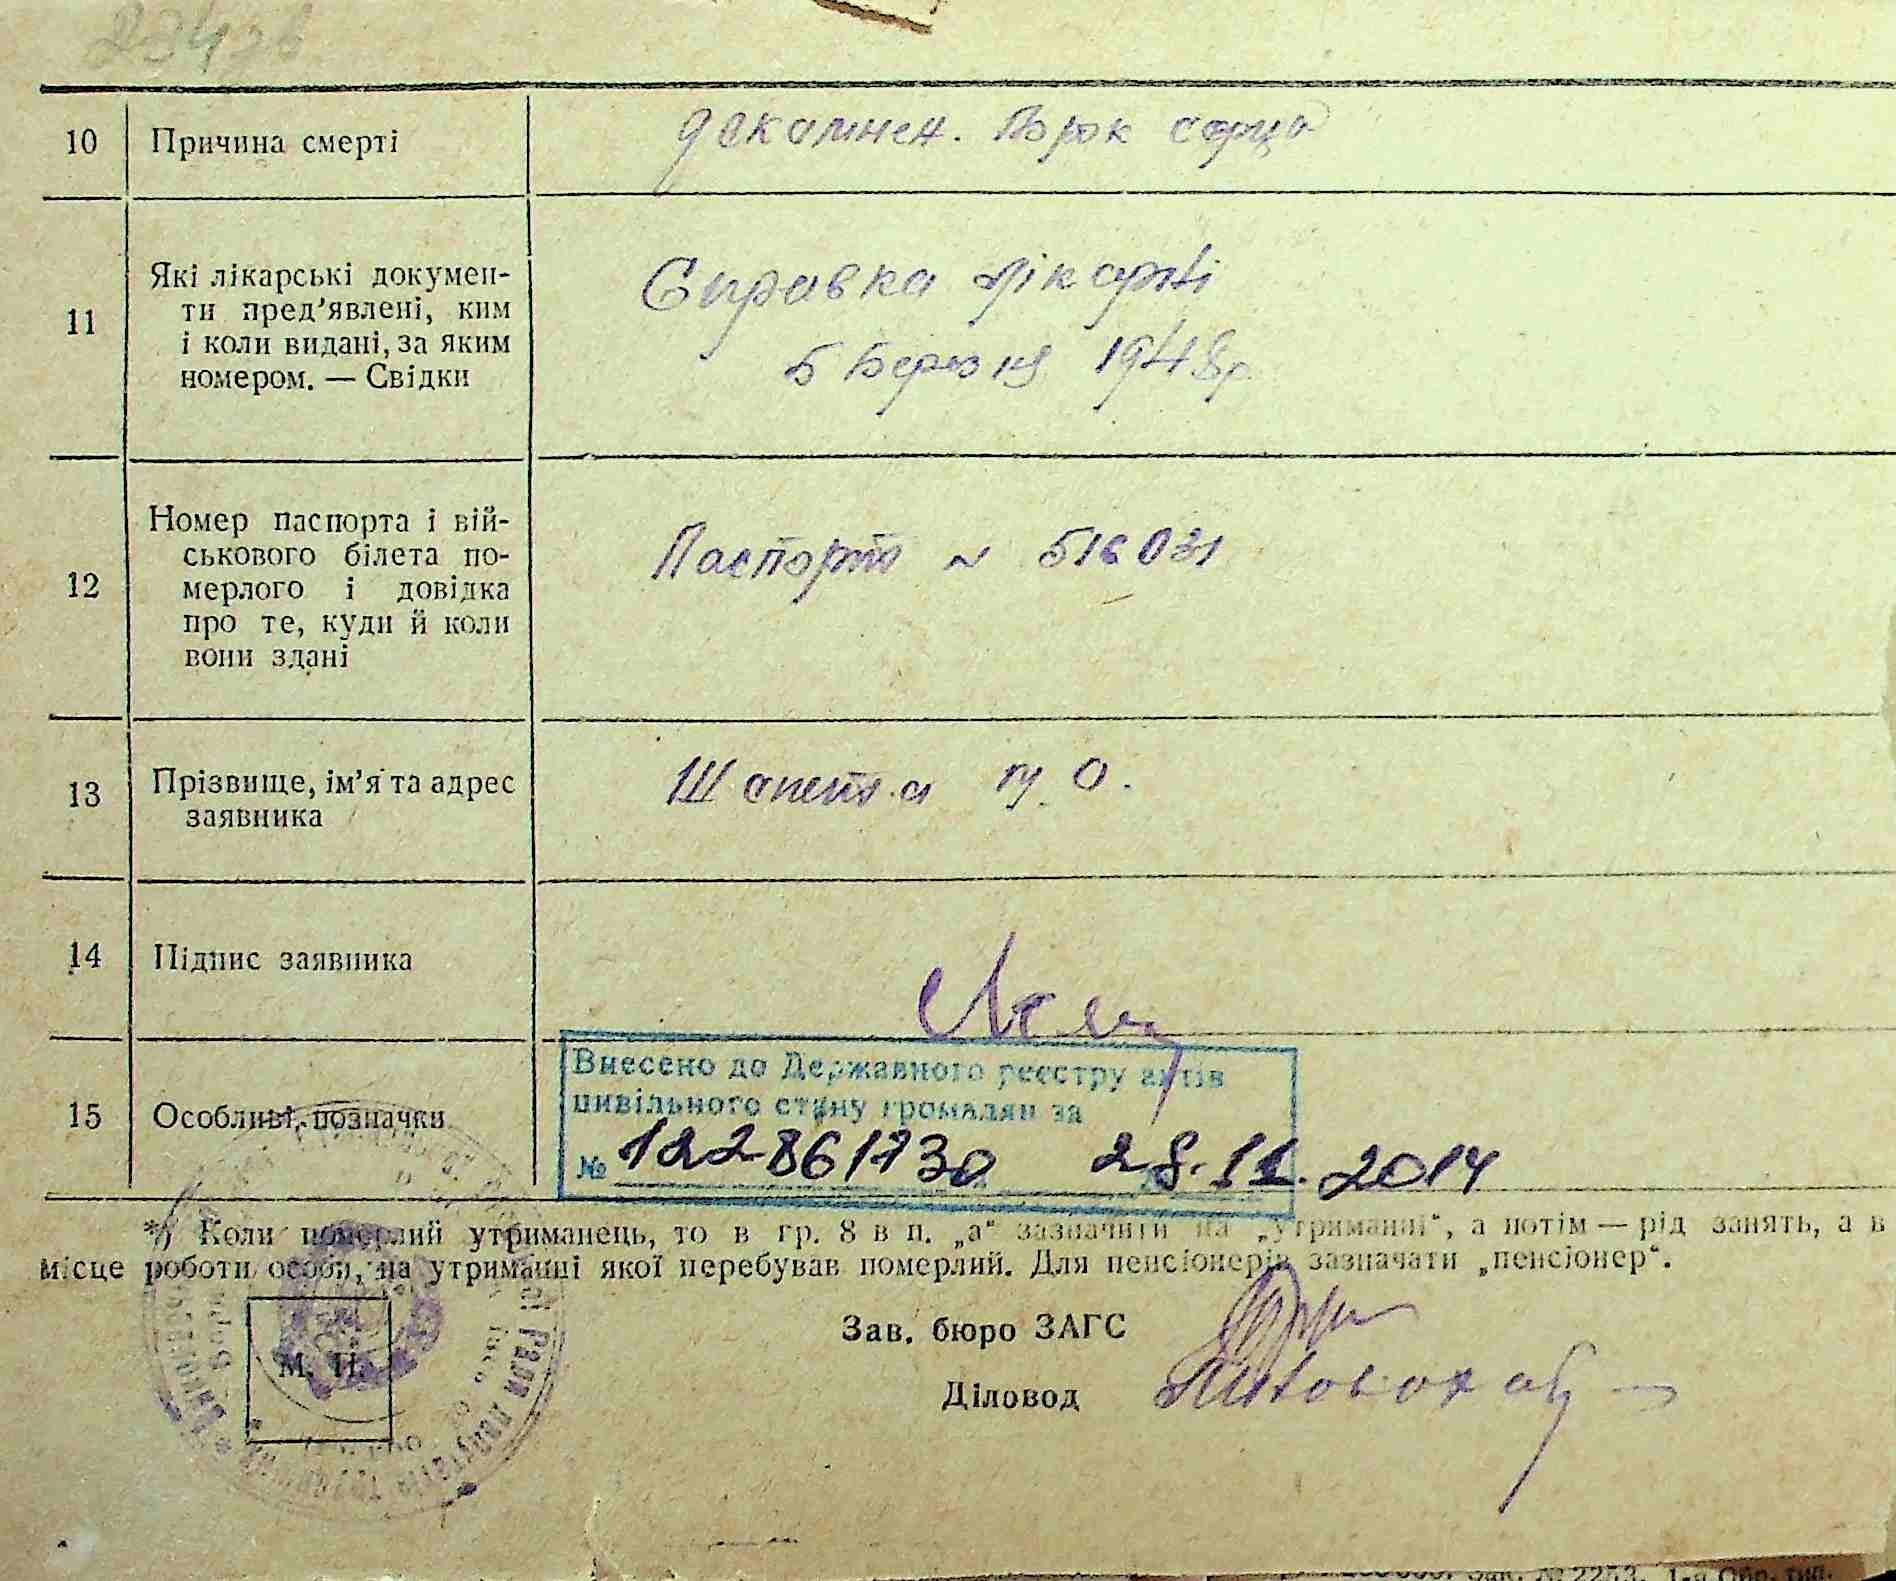 10 Причина смерті декомпен. Порок серца
11 Які лікарські докумен-
ти пред'явлені, ким
і коли видані, за яким
номером. — Свідки
Справка лікарні
5 Березня 1948р
12 Номер паспорта і вій-
ськового білета по-
мерлого і довідка
про те, куди й коли
вони здані
Паспорт № 516031
13 Прізвище, ім'я та адрес
заявника
О.
14 Підпис заявника
15 Особливі позначки
Внесено до Державного реєстру актів
цивільного стану громадян за
№ 122861730 28.11.2014
*) Коли померлий утриманець, то в гр. 8 в п. „а“ зазначити на „утриманні“, а потім — рід занять, а в
місце роботи особи, на утриманні якої перебував померлий. Для пенсіонерів зазначати „пенсіонер“.
Зав. бюро ЗАГС
Діловод
М. П.
Зак. № 2253. 1-а Обр. тип.